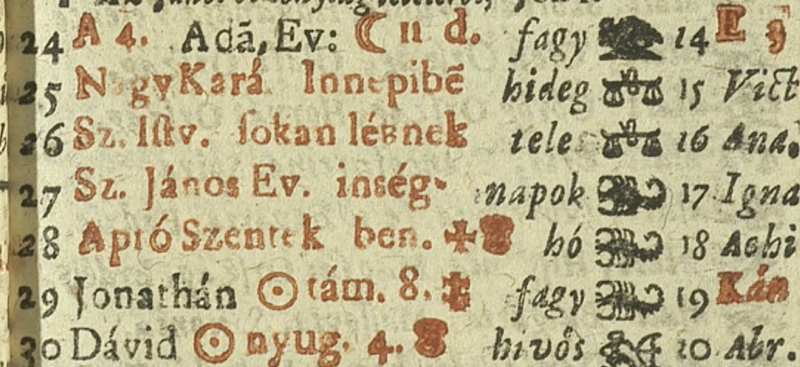 24 A 4. Adã, Ev: ☾ 11 d. fagy 14 E
25 Nagy Kará Innepibẽ hideg 15 Vict
26 Sz. Iſtv. ſokan lésnek teles 16 Ana.
27 Sz. János Ev. inség- napok 17 Igna
28 Apró Szentek ben. hó 18 Achi
29 Jonathán ☉ tám. 8. fagy 19 Kán
30 Dávid ☉ nyug. 4. hivös 20 Abr.